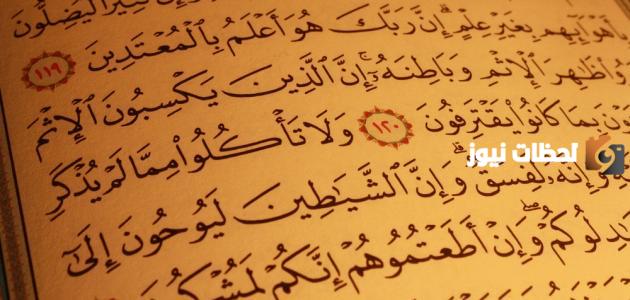 لَّيُضِلُّونَ
بِأَهْوَآئِهِم بِغَيْرِ عِلْمٍ ۗ إِنَّ رَبَّكَ هُوَ أَعْلَمُ بِٱلْمُعْتَدِينَ ١١٩
ظَٰهِرَ ٱلْإِثْمِ وَبَاطِنَهُۥٓ ۚ إِنَّ ٱلَّذِينَ يَكْسِبُونَ ٱلْإِثْمَ
بِمَا كَانُوا۟ يَقْتَرِفُونَ ١٢٠ وَلَا تَأْكُلُوا۟ مِمَّا لَمْ يُذْكَرِ
وَإِنَّهُۥ لَفِسْقٌ ۗ وَإِنَّ ٱلشَّيَٰطِينَ لَيُوحُونَ إِلَىٰٓ
وَإِنْ أَطَعْتُمُوهُمْ إِنَّكُمْ
لحظات نيوز